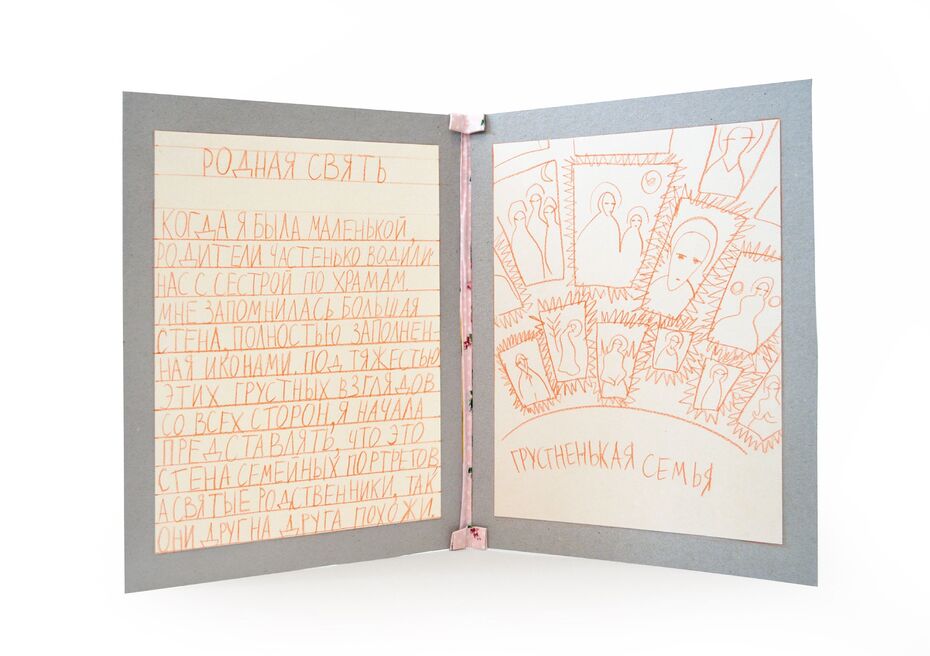 РОДНАЯ СВЯТЬ
КОГДА Я БЫЛА МАЛЕНЬКОЙ,
РОДИТЕЛИ ЧАСТЕНЬКО ВОДИЛИ
НАС С СЕСТРОЙ ПО ХРАМАМ.
МНЕ ЗАПОМНИЛАСЬ БОЛЬШАЯ
СТЕНА, ПОЛНОСТЬЮ ЗАПОЛНЕН-
НАЯ ИКОНАМИ. ПОД ТЯЖЕСТЬЮ
ЭТИХ ГРУСТНЫХ ВЗГЛЯДОВ
СО ВСЕХ СТОРОН, Я НАЧАЛА
ПРЕДСТАВЛЯТЬ, ЧТО ЭТО
СТЕНА СЕМЕЙНЫХ ПОРТРЕТОВ,
А СВЯТЫЕ РОДСТВЕННИКИ, ТАК
ОНИ ДРУГ НА ДРУГА ПОХОЖИ.
ГРУСТНЕНЬКАЯ СЕМЬЯ